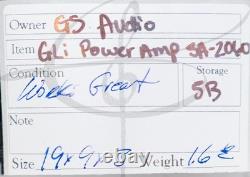 Owner GS Audio
Item GLi Power Amp SA-2060
Condition
Storage
Works Great
5B
Note
Size 19x9x3 Weight 16 £